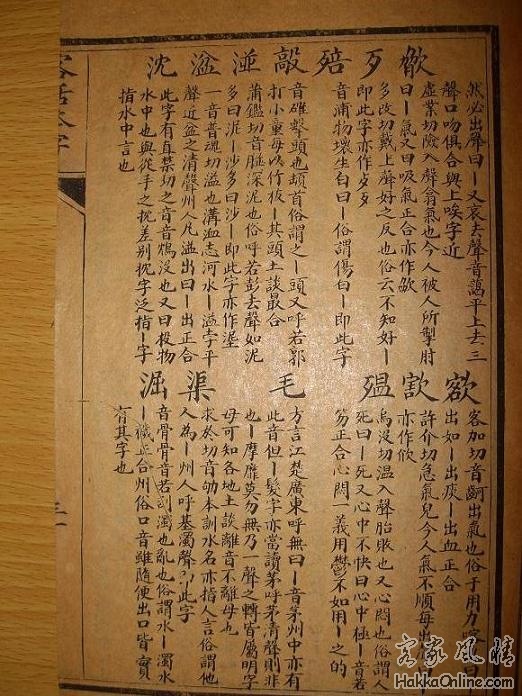 然必出聲曰丨又哀去聲音謁平上去三
聲口吻俱合與上唉字近
歛
虛業切險入聲翕氣也今人被人所掣肘
曰丨氣又曰吸氣正合亦作歙
歹
多改切戴上聲好之反也俗云不知好丨
即此字亦作歺
殕
音浦物壞生白曰丨俗謂傷白丨即此字
敲
音磽擊頭也頓首俗謂之丨頭又呼若郭
打小童每以竹枝丨其頭土談最合
湴
蒲鑑切音深泥也俗呼若彭去聲如泥
多曰泥丨沙多曰沙丨即此字亦作埿
湓
一音普魂切溢也溝洫志河水丨溢字平
聲近盆之清聲州人凡溢出曰丨出正合
沈
此字有直禁切之音音鴆沒也又曰投物
水中也與從手之抌差别抌字泛指丨字
指水中言也
客加切音出氣也俗于用力
出如丨出痰丨出血正合
許介切急氣皃今人氣不順每出
亦作欣
殟
烏没切温入聲胎敗也又心悶也俗謂人
死曰丨死又心中不快曰心中極丨音若
笏正合心悶一義用鬱不如用丨之的
毛
方言江楚廣東呼無曰丨音茅州中亦有
此音但丨髮字亦當讀茅呼茅清聲則非
也丨摩靡莫勿無乃一聲之轉皆屬明字
母可知各地土談離音不離母也
渠
求於切音劬本訓水名亦指人言俗謂他
人為丨州人呼基濁聲即此字
淈
音骨骨音若刮濁也亂也俗謂水丨濁水
丨正合州俗口音雖隨便出口皆丨實
有其字也
客話本字
客家風情
HakkaOnline.com